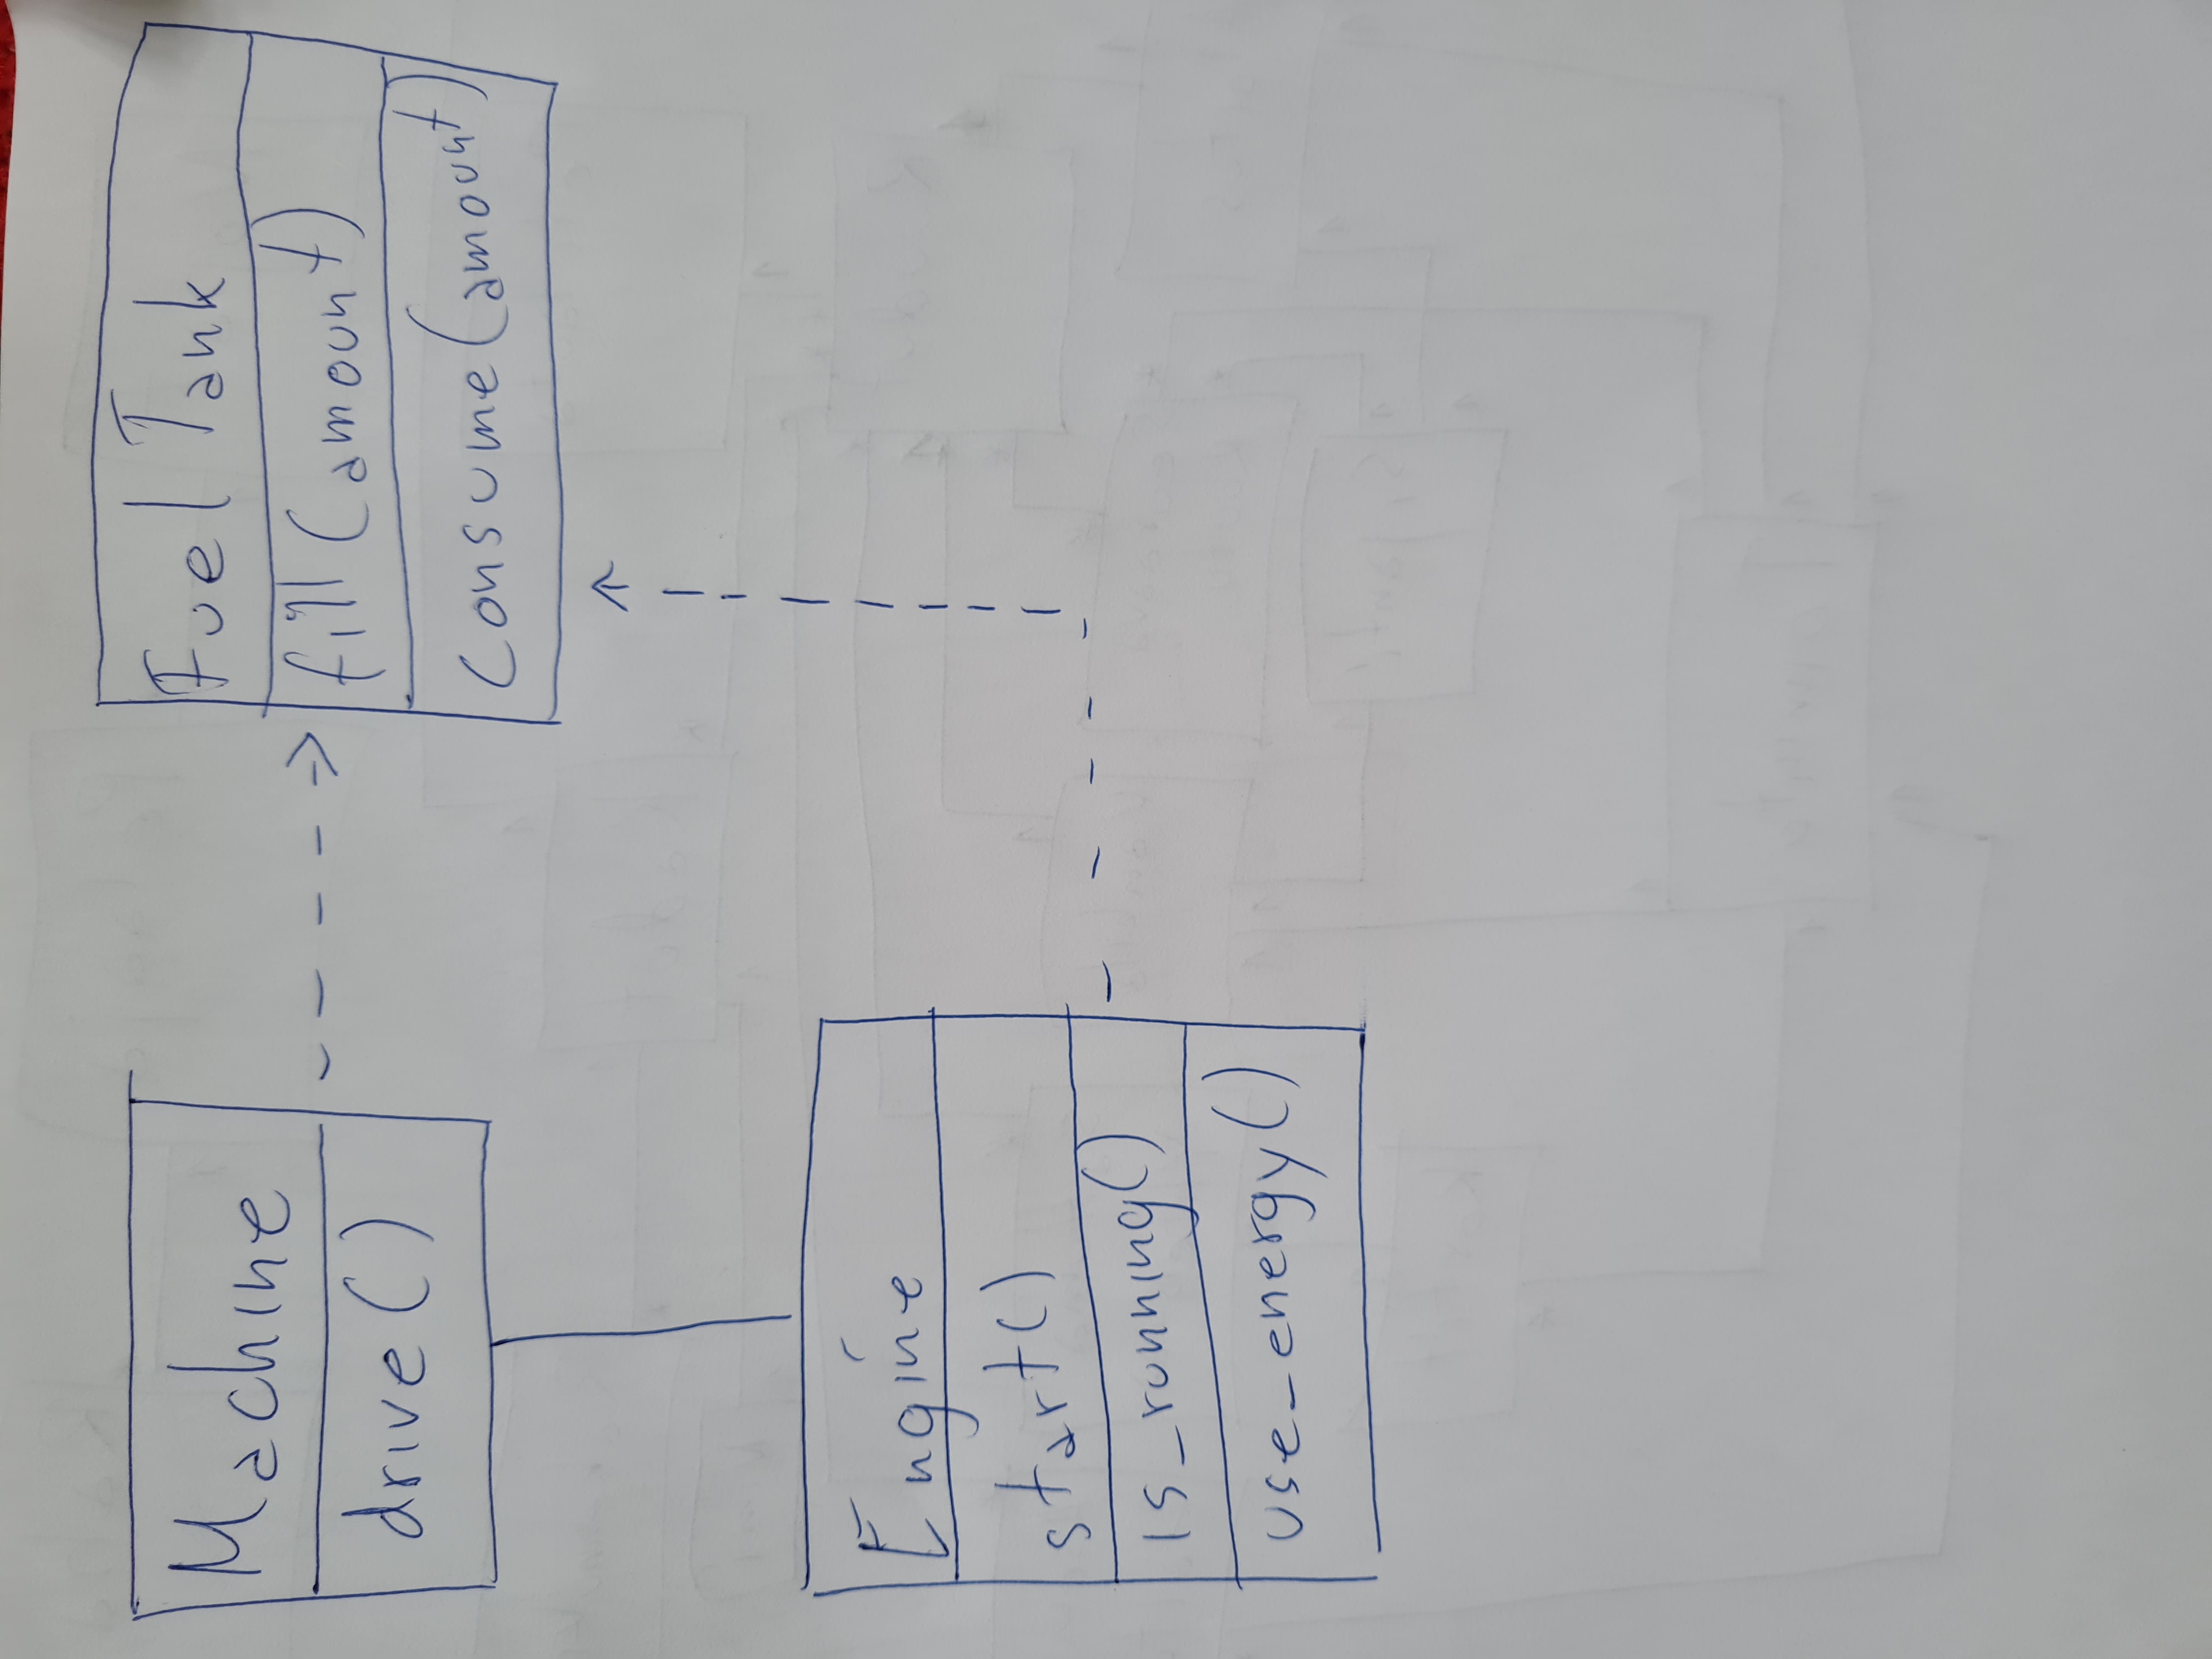 Machine
drive()
Fuel Tank
fill(amount)
consume(amount)
Engine
start()
is_running()
use_energy()